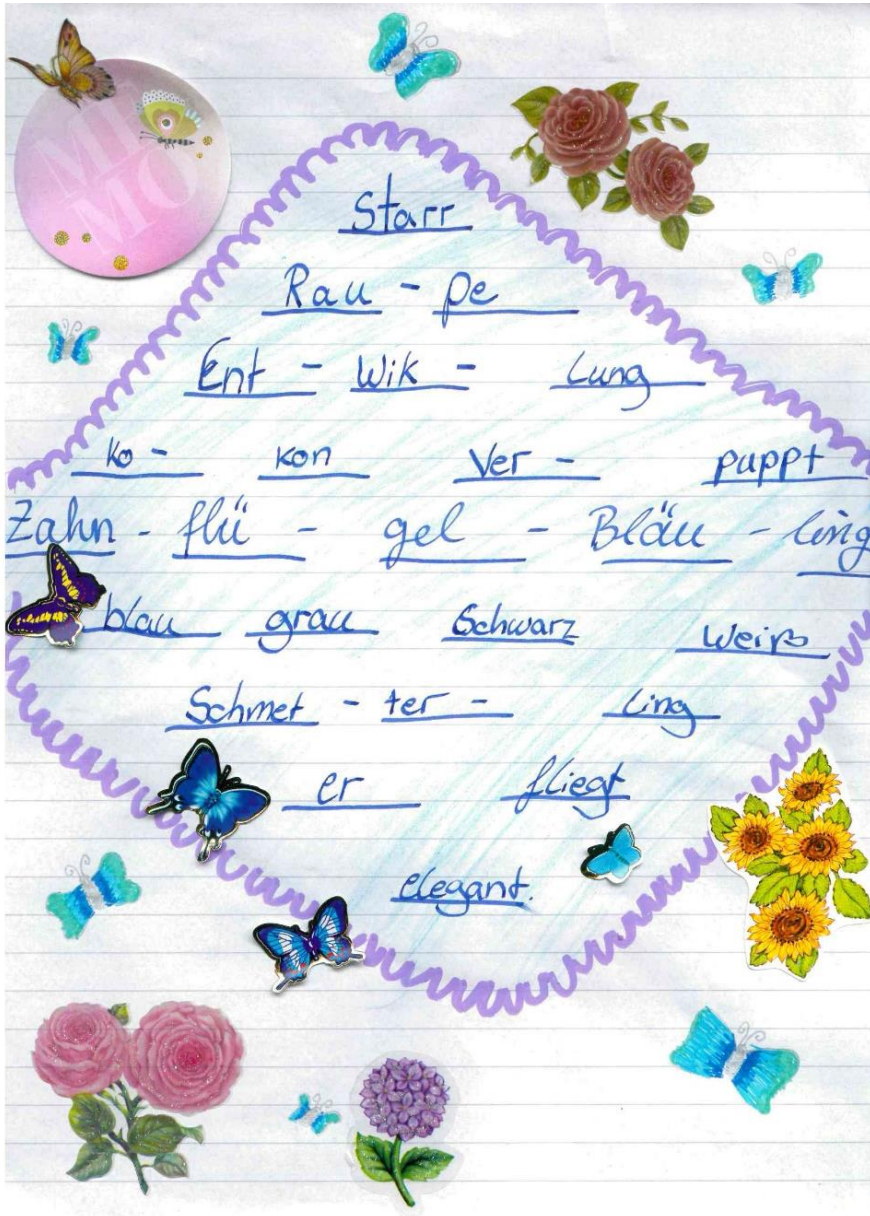 MI
MO
Starr
Rau - pe
Ent - Wik - lung
ko - kon Ver - puppt
Zahn - flü - gel - Bläu - ling
blau grau Schwarz Weiß
Schmet - ter - ling
er fliegt
elegant.